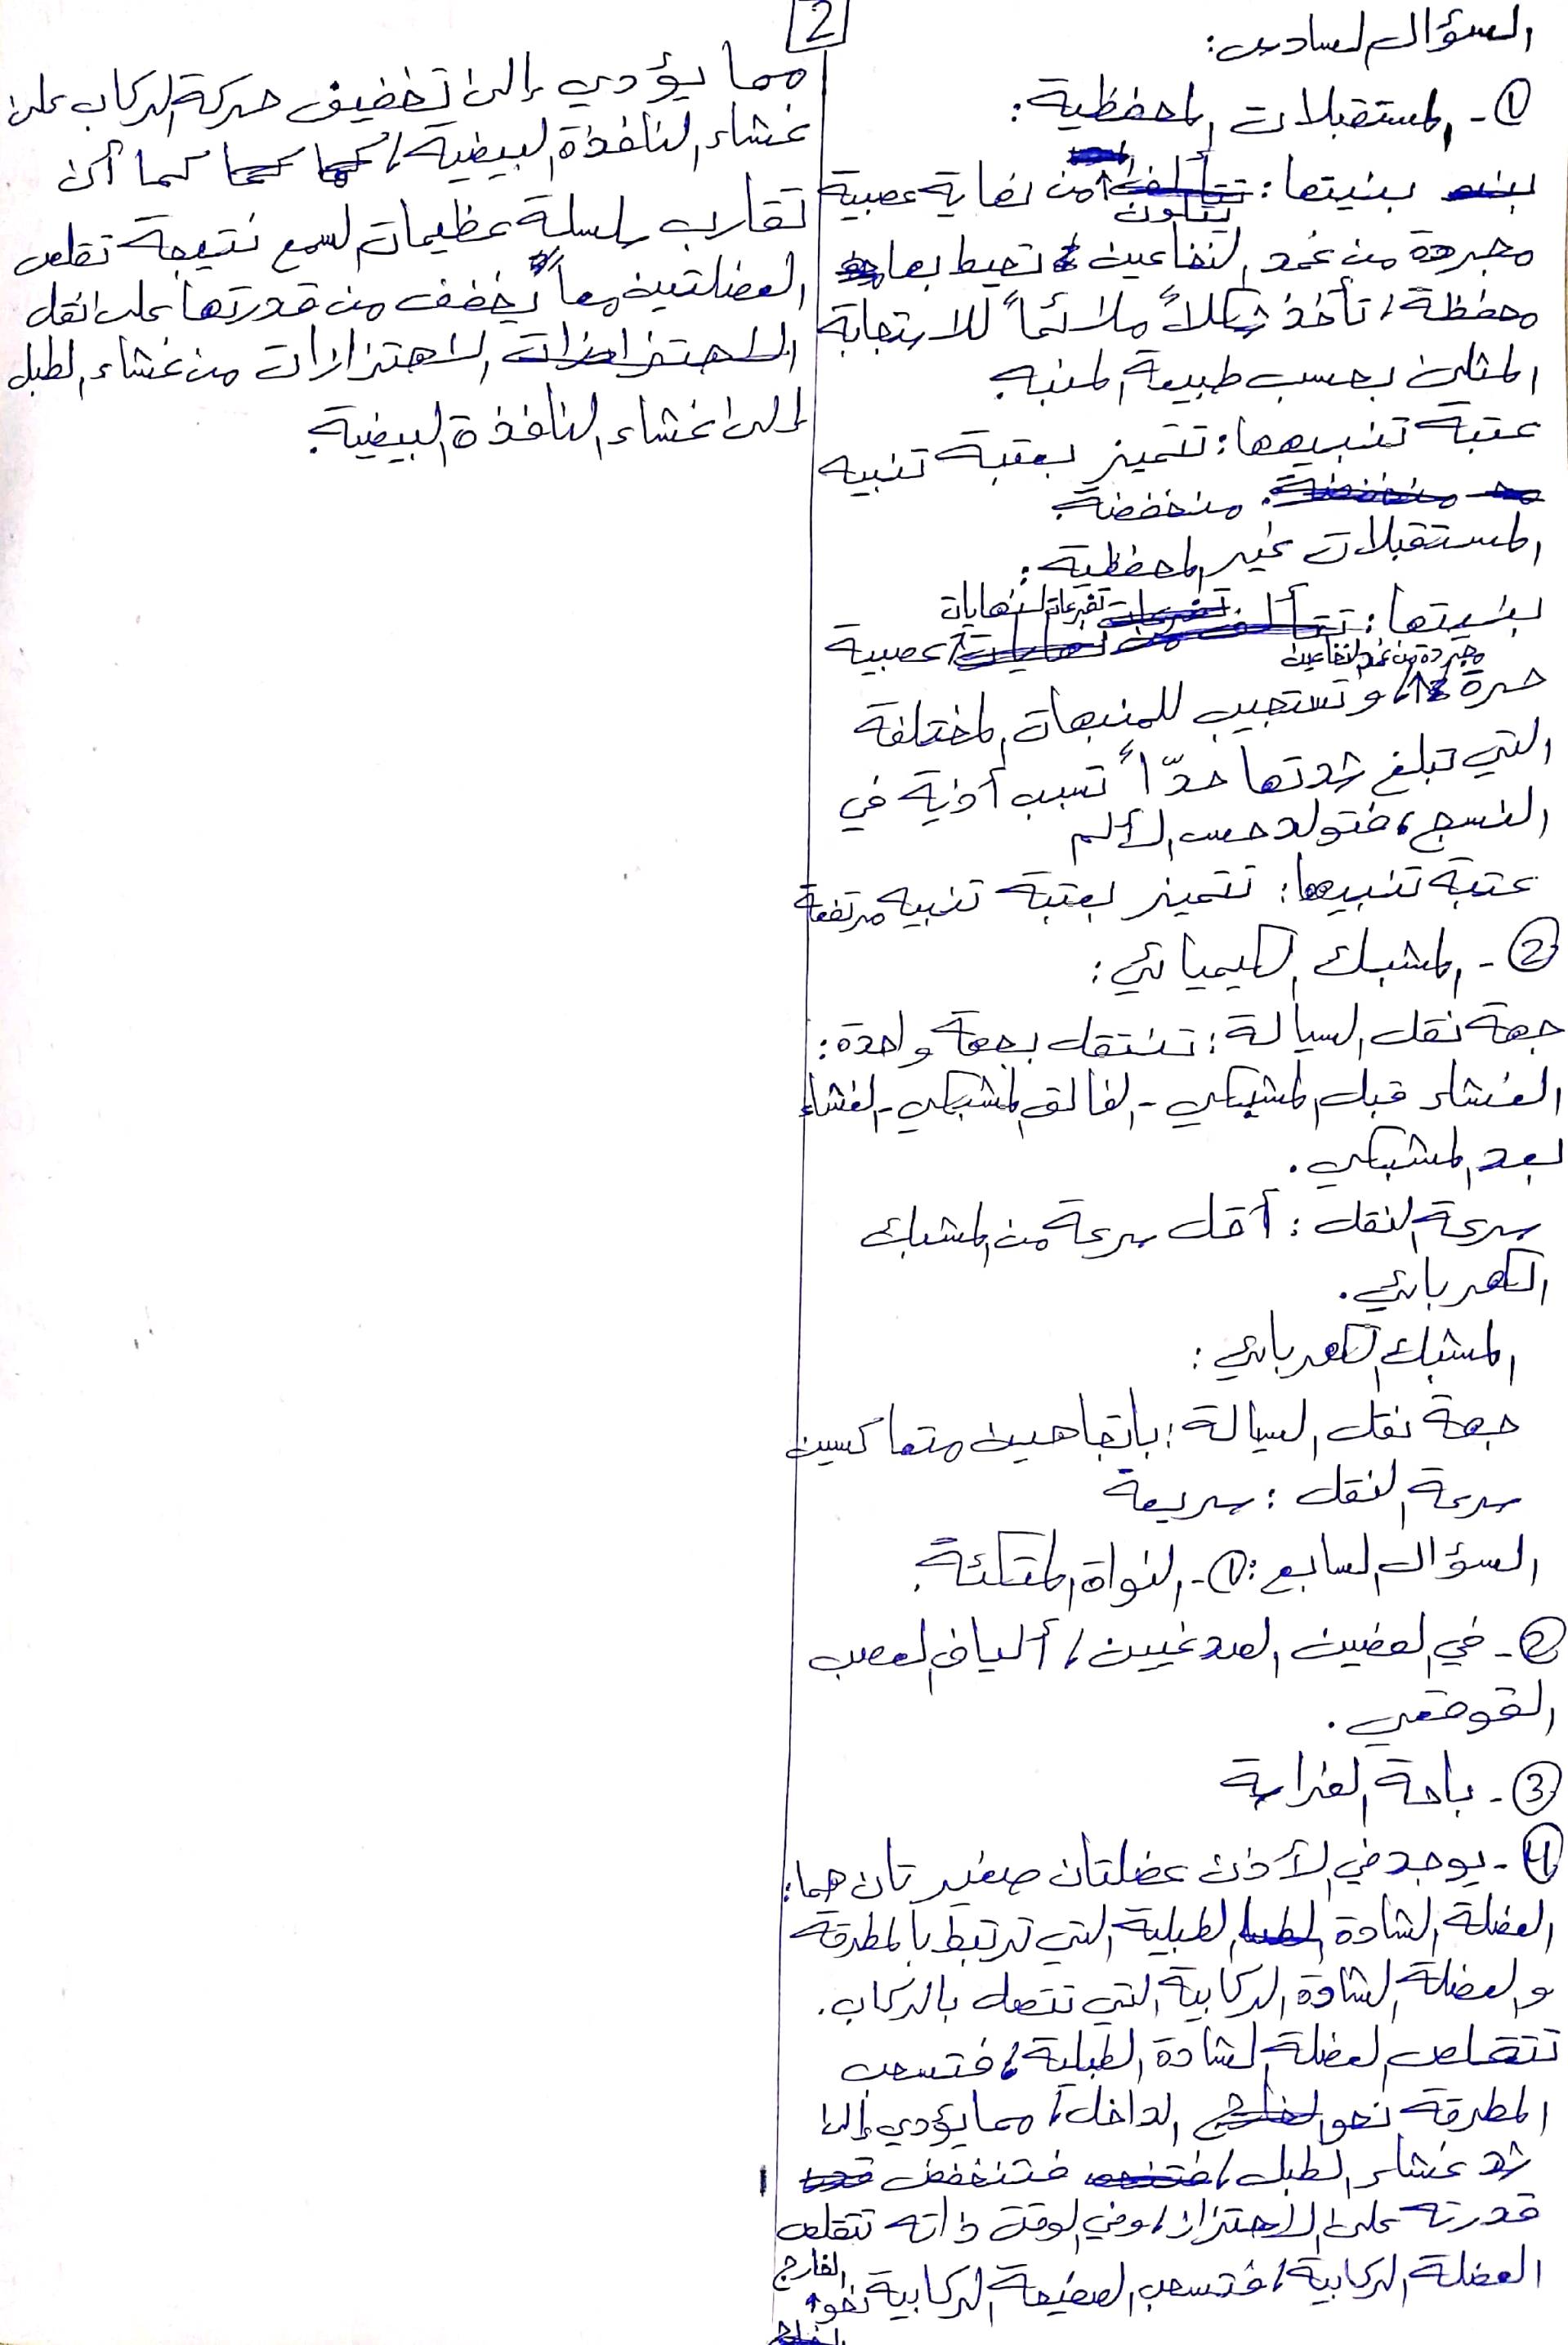 السؤال السادس:
① - المستقبلات المحفظية:
بنيتها: تتكون من نهاية عصبية
مجردة من غمد النخاعين تحيط بها
محفظة، تأخذ شكلاً ملائماً للاستجابة
المثلى بحسب طبيعة المنبه.
عتبة تنبيهها: تتميز بعتبة تنبيه
منخفضة.
المستقبلات غير المحفظية:
بنيتها: تفرعات لنهايات عصبية
حرة مجردة من غمد النخاعين، وتستجيب للمنبهات المختلفة
التي تبلغ شدتها حدّاً تسبب أذية في
النسج، فتولد حس الألم
عتبة تنبيهها: تتميز بعتبة تنبيه مرتفعة
② - المشبك الكيميائي:
جهة نقل السيالة: تنتقل بجهة واحدة:
الغشاء قبل المشبكي - الفالق المشبكي - الغشاء
بعد المشبكي.
سرعة النقل: أقل سرعة من المشبك
الكهربائي.
المشبك الكهربائي:
جهة نقل السيالة: باتجاهين متعاكسين
سرعة النقل: سريعة
السؤال السابع: ① - النواة المتكئة.
② - في الفصين الصدغيين، ألياف العصب
القوقعي.
③ - باحة الفراسة
④ - يوجد في الأذن عضلتان صغيرتان هما:
العضلة الشادة الطبلية التي ترتبط بالمطرقة
والعضلة الشادة الركابية التي تتصل بالركاب.
تتقلص العضلة الشادة الطبلية، فتسحب
المطرقة نحو الداخل، مما يؤدي إلى
شد غشاء الطبل، فتنخفض
قدرته على الاهتزاز، وفي الوقت ذاته تتقلص
العضلة الركابية، فتسحب الصفيحة الركابية نحو الخارج
2
مما يؤدي إلى تخفيف حركة الركاب على
غشاء النافذة البيضية، كما أن
تقارب سلسلة عظيمات السمع نتيجة تقلص
العضلتين معاً يُخفف من قدرتها على نقل
الاهتزازات من غشاء الطبل
إلى غشاء النافذة البيضية.